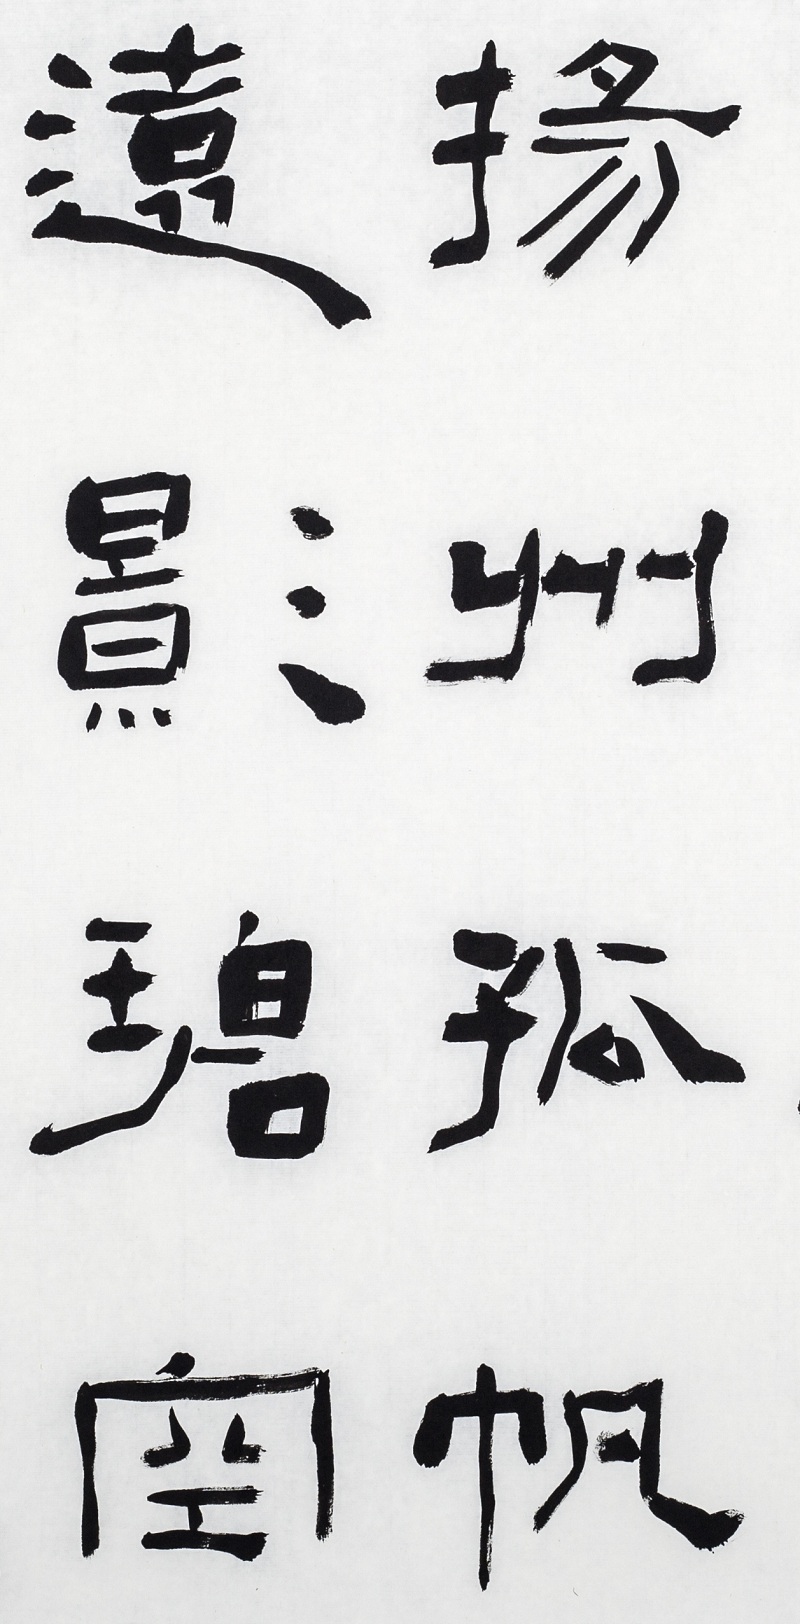 揚州孤帆
遠影碧空